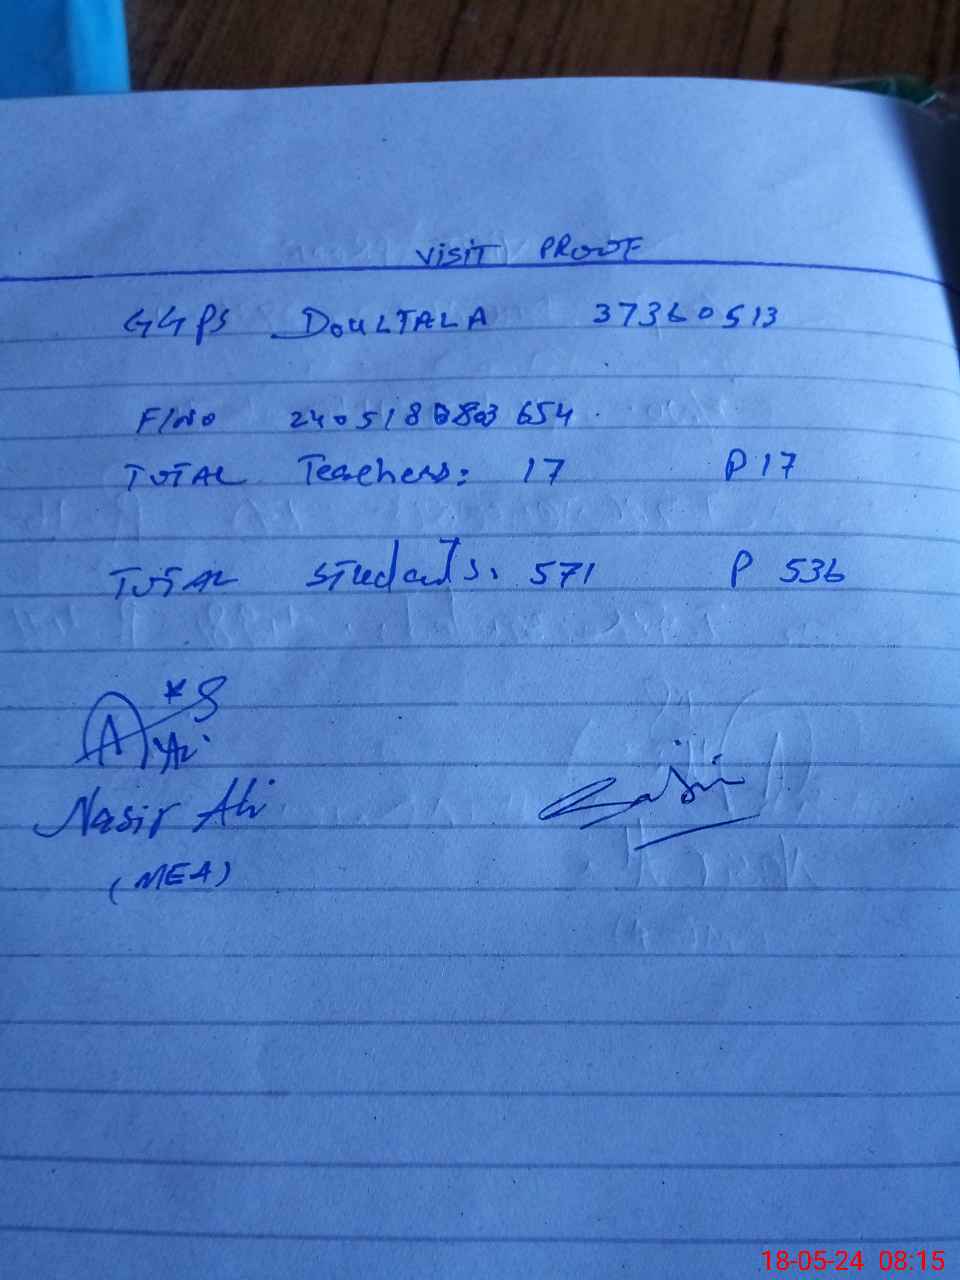 VISIT PROOF
GGPS DOULTALA 37360513
F/No 2405180803654
TOTAL Teachers: 17 P 17
TOTAL Students. 571 P 536
Nasir Ali
(MEA)
18-05-24 08:15